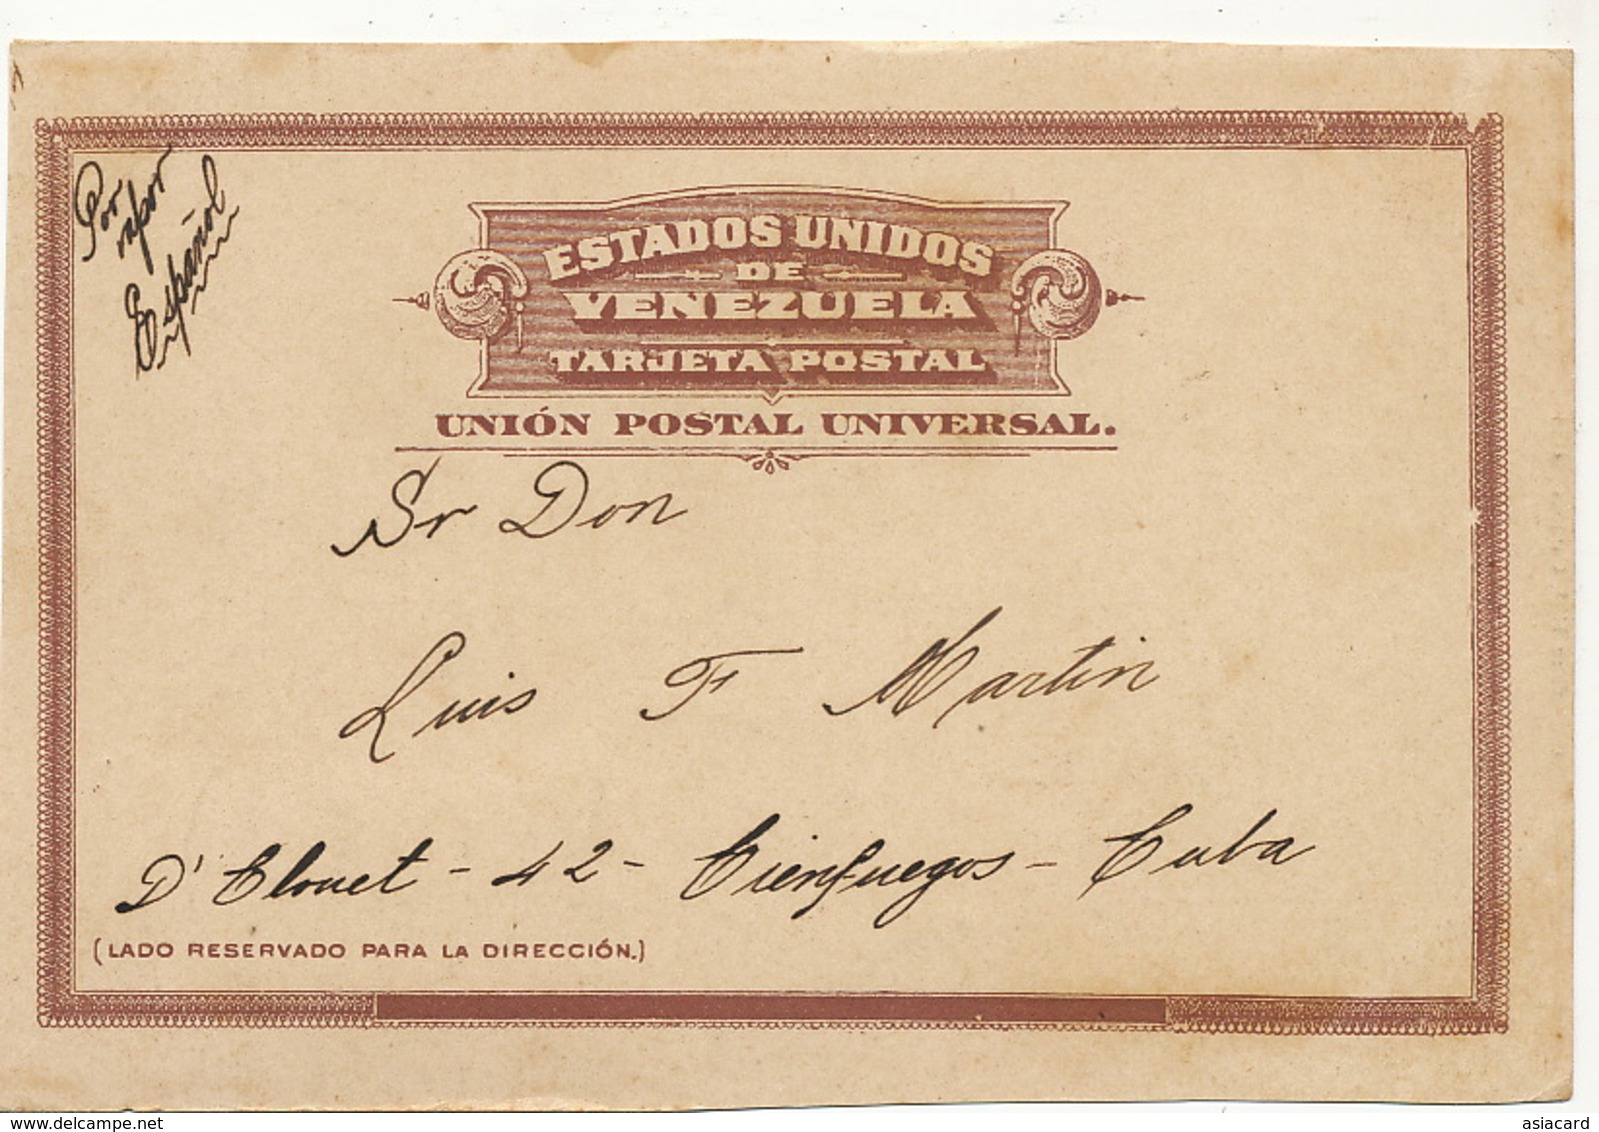 Por
vapor
Español
ESTADOS UNIDOS
DE
VENEZUELA
TARJETA POSTAL
UNIÓN POSTAL UNIVERSAL.
Sr Don
Luis F Martin
D' Clouet - 42 - Cienfuegos - Cuba
(LADO RESERVADO PARA LA DIRECCIÓN.)
delcampe.net
asiacard